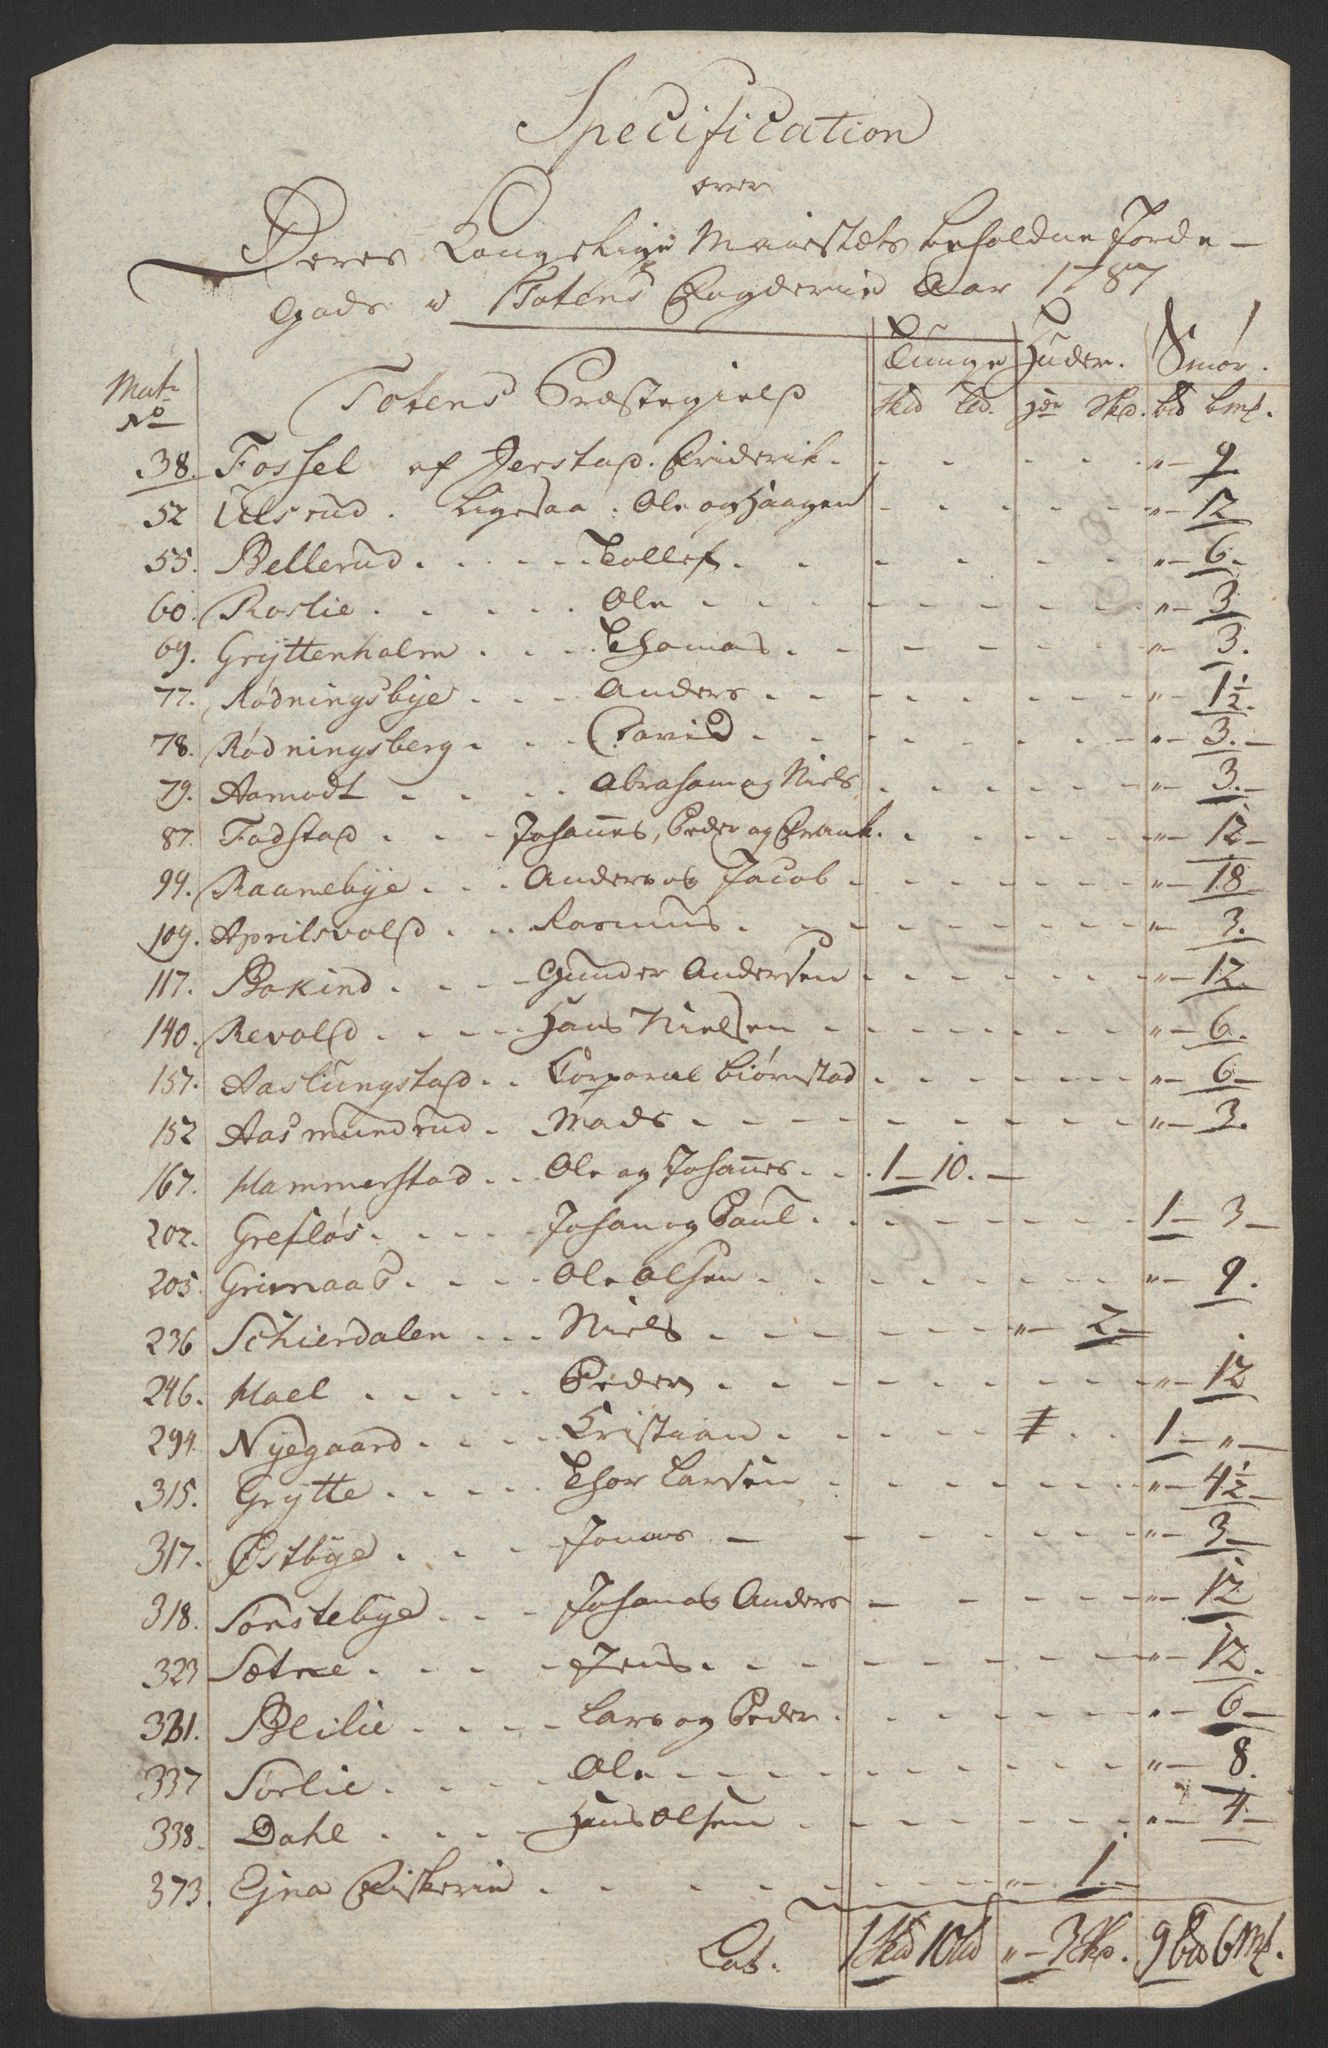 Specification
over
Deres Kongelige Maiestæts beholdne Jorde-
Gods i Totens Fogderie Aar 1787
Mat: No Totens Præstegield Tunge Huder. Smør.
Skd Ld. Hdr Skd. bd bmk.
38. Fossel af Jerstad. Friderik. " 9
52 Ulsrud. Ligesaa. Ole og Haagen " 12
55. Bellerud. Tollef. " 6.
60. Roslie. Ole " 3
69. Gryttenholm. Thomas. " 3.
77. Rødningsbye Anders. " 1½.
78. Rødningsberg. David " 3.
79. Aamodt Abraham og Niels " 3.
87. Fodstad Johannes, Peder og Frank. " 12
99. Raanebye. Anders og Jacob. " 18
109. Aprilsvold Rasmus. " 3.
117. Bokind. Gunder Andersen " 12.
140. Revold. Hans Nielsen " 6.
157. Aaslungstad. Corporal Biørnstad " 6
152 Aasmundrud. Mads " 3.
167. Hammerstad. Ole og Johannes. 1 10.
202. Grefløs. Johan og Paul. 1 3
205. Grimaas. Ole Olsen " 9.
236 Schierdalen Niels " 2
246. Hael Peder " 12
294. Nyegaard. Cristian 1 "
315. Grytte. Thor Larsen " 4½
317. Østbye. Jonas " 3
318. Sønstebye. Johanes Anders " 12
323 Sætre. Jens. " 12.
331. Blilie Lars og Peder. " 6
337 Sørlie. Ole " 8.
338. Dahl Hans Olsen " 4
373. Ejna Fiskerie " 1.
Lat. 1 Skd 10 Ld " 3 Skd. 9 bd 6 mk.